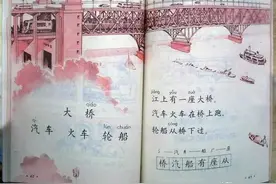 qiáo
大桥
qì chē lún chuán
汽车 火车 轮船
jiāng yǒu zuò
江上有一座大桥，
汽车火车在桥上跑，
cóng
轮船从桥下过。
桥 汽 船 有 座 从